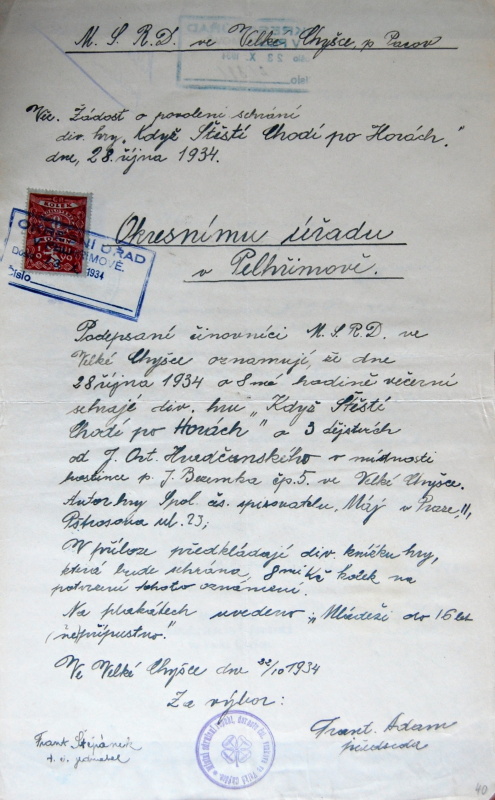 M. S. R. D. ve Velké Chyšce, p. Pacov
Věc. Žádost o povolení sehrání
div. hry „Když Štěstí Chodí po Horách."
dne, 28. října 1934.
Okresnímu úřadu
v Pelhřimově.
KOLEK
1934
číslo
Podepsaní činovníci M. S. R. D. ve
Velké Chyšce oznamují, že dne
28 října 1934 o 8 mé hodině večerní
sehrají div. hru „Když Štěstí
Chodí po Horách" o 3 dějstvích
od J. Ort. Hvedčanského v místnosti
hostince p. J. Bezemka čp. 5. ve Velké Chyšce.
Autor hry Spol. čs. spisovatelů, Máj v Praze, II,
Pštrosova ul. 23;
V příloze předkládají div. knížku hry,
která bude sehrána, kolek na
potvrzení tohoto oznámení.
Na plakátech uvedeno „Mládeži do 16 let
(ne)přípustno."
Ve Velké Chyšce dne 22/10 1934
Za výbor:
Frant. Štěpánek
t. č. jednatel
Frant. Adam
předseda
40